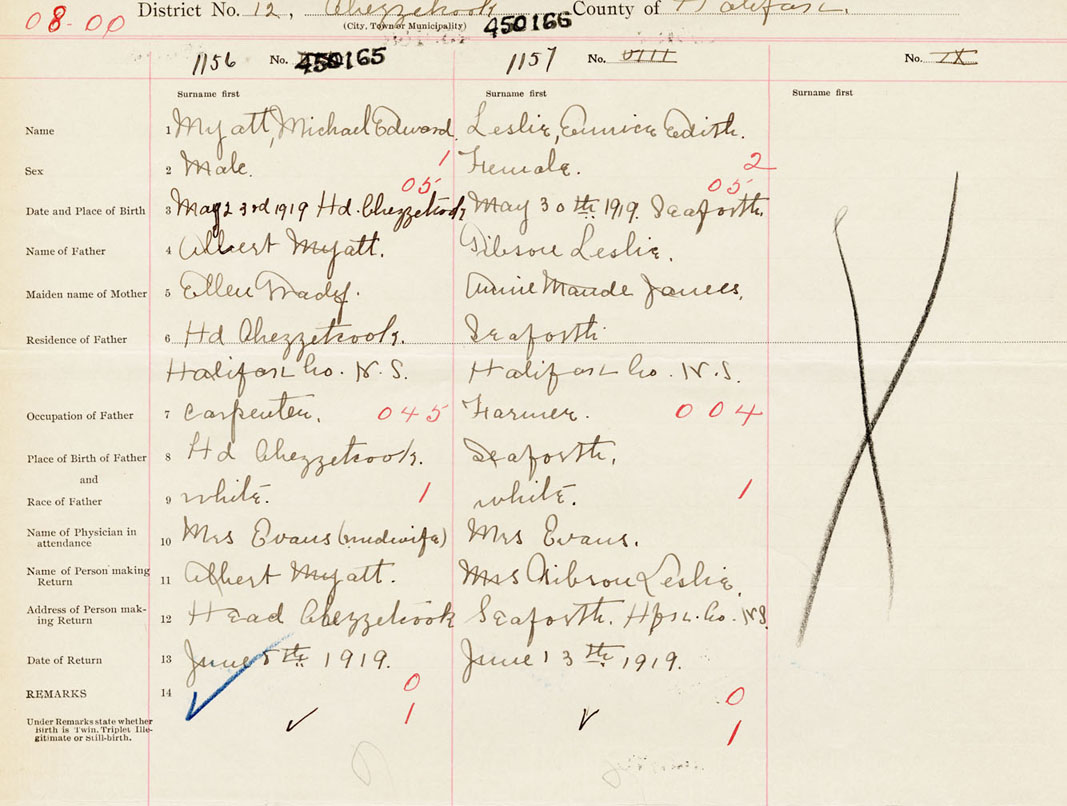 08-00 District No. 12, Chezzetcook County of Halifax.
(City, Town or Municipality)
450166
1156 No. 450165 1157 No. VIII No. IX
Surname first Surname first Surname first
Name 1 Myatt, Michael Edward. Leslie, Eunice Edith.
Sex 2 Male. 1 Female. 2
05 05
Date and Place of Birth 3 May 23rd 1919 Hd. Chezzetcook May 30th 1919. Seaforth.
Name of Father 4 Albert Myatt. Gibson Leslie.
Maiden name of Mother 5 Ellen Grady. Annie Maude
Residence of Father 6 Hd Chezzetcook. Seaforth
Halifax Co. N.S. Halifax Co. N.S.
Occupation of Father 7 Carpenter. 045 Farmer. 004
Place of Birth of Father 8 Hd Chezzetcook. Seaforth.
and
Race of Father 9 white. 1 white. 1
Name of Physician in
attendance 10 Mrs Evans (midwife) Mrs Evans.
Name of Person making
Return 11 Albert Myatt. Mrs Gibson Leslie.
Address of Person mak-
ing Return 12 Head Chezzetcook Seaforth. Hfx. Co. N.S.
Date of Return 13 June 5th 1919. June 13th 1919.
REMARKS 14 0 0
Under Remarks state whether
Birth is Twin, Triplet Ille-
gitimate or Still-birth. 1 1